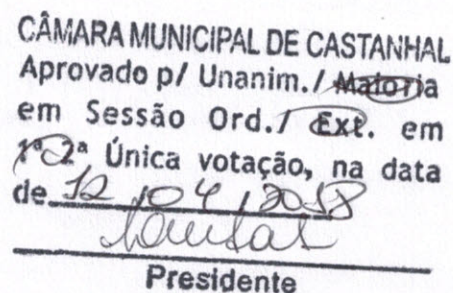 CÂMARA MUNICIPAL DE CASTANHAL
Aprovado p/ Unanim./ Maioria
em Sessão Ord./ Ext. em
1ª 2ª Única votação, na data
de 12 / 04 / 2018
Presidente